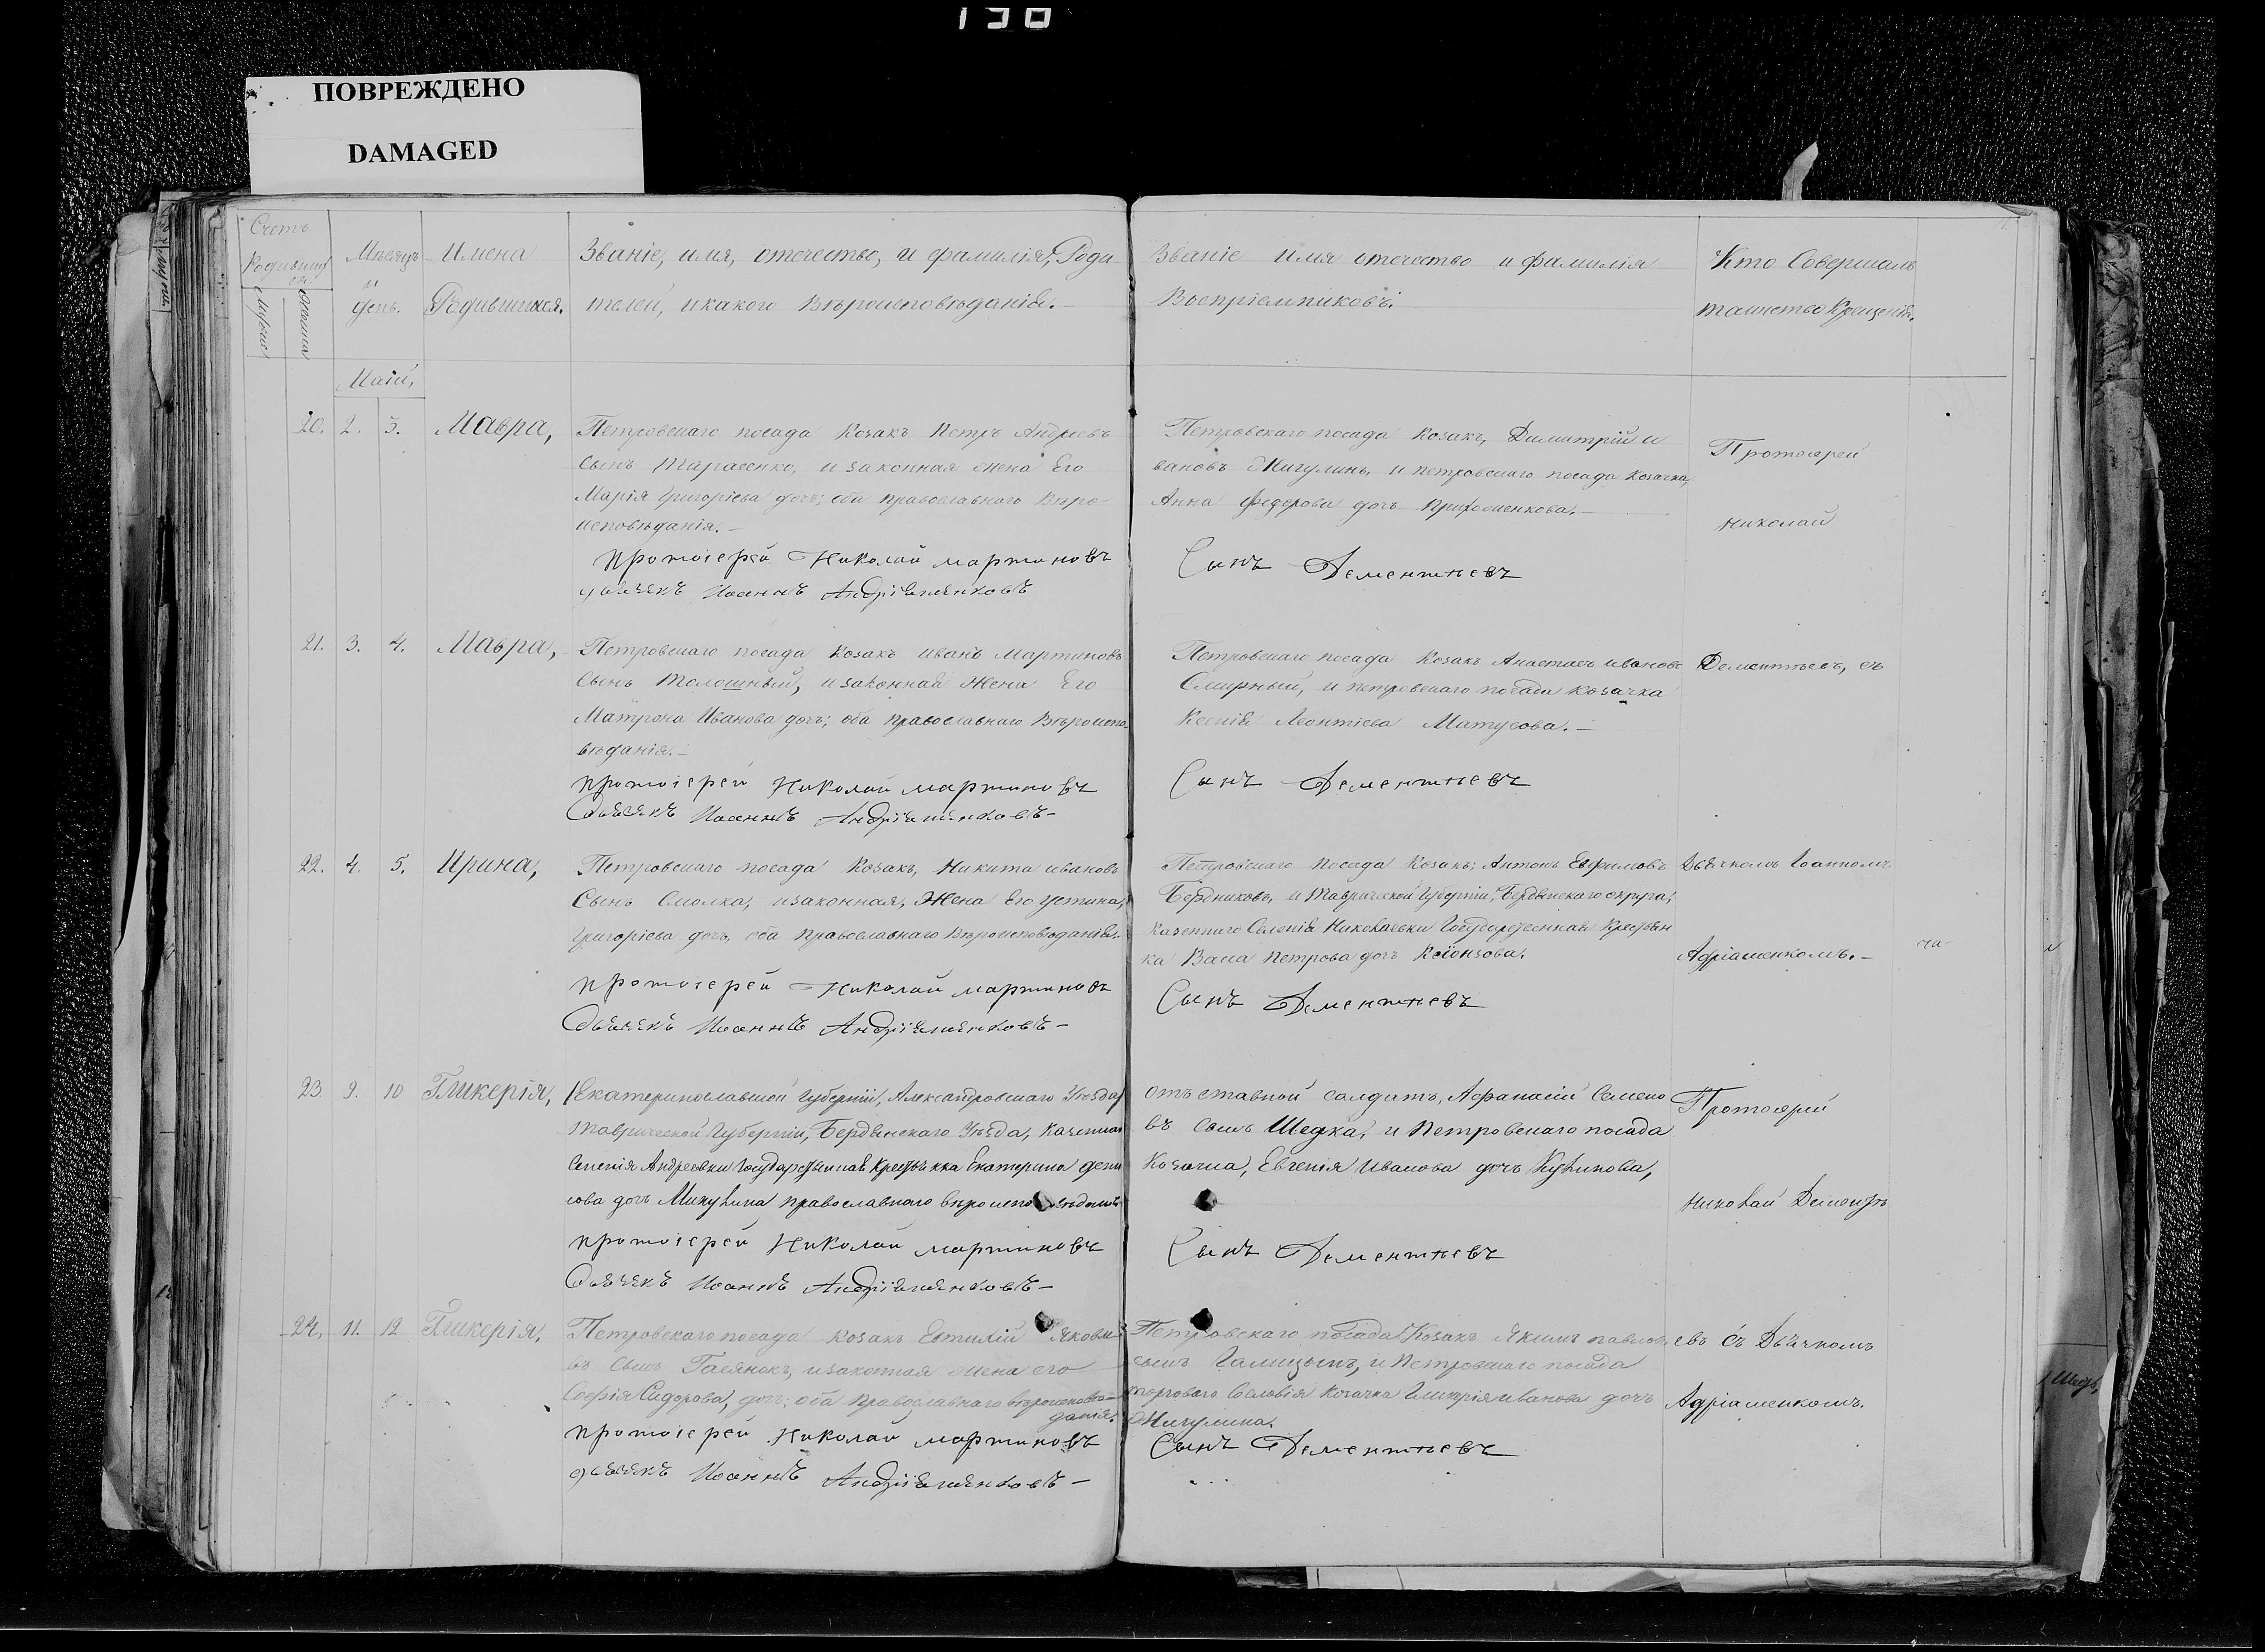 ПОВРЕЖДЕНО
DAMAGED
Счетъ
Родивших
ся.
Мужска
Женска
Мѣсяцъ
и
день.
Имена
Родившихся.
Званіе, имя, отечество, и фамилія, Роди
телей, и какого Вѣроисповѣданія.
Званіе имя отечество и фамилія
Воспріемниковъ.
Кто Совершалъ
таинство Крещенія.
Маій,
20. 2. 3. Мавра,
Петровскаго посада Козакъ Петръ Андреевъ
сынъ Тарасенко, и законная жена Его
Марія Григоріева дочь; оба православнаго Вѣро-
исповѣданія.-
протоіерей Николай мартиновъ
дьячекъ Иоаннъ
Петровскаго посада Козакъ, Димитрій и
вановъ Жигулинъ, и петровскаго посада Козачка,
Анна Федорова дочь
Сынъ Дементьевъ
Протоіерей
Николай
21. 3. 4. Мавра,
Петровскаго посада Козакъ иванъ Мартиновъ
Сынъ Толошный, и законная Жена Его
Матрона Иванова дочь; оба православнаго Вѣроиспо-
вѣданія.-
протоіерей Николай мартиновъ
дьячекъ Иоаннъ
Петровскаго посада Козакъ Анастасъ ивановъ
Смирный, и петровскаго посада козачка
Ксенія Леонтіева Матусова.-
Сынъ Дементьевъ
Дементьевъ, съ
22. 4. 5. Ирина,
Петровскаго посада Козакъ, Никита ивановъ
Сынъ Смолка, и законная, Жена Его устина,
Григоріева дочь, оба православнаго Вѣроисповѣданія.
протоіерей Николай мартиновъ
дьячекъ Иоаннъ
Петровскаго посада Козакъ, Антонъ Евфимовъ
Бердниковъ, и Таврической Губерніи, Бердянскаго округа,
казеннаго Селенія Николаевки Государственная Крестьян
ка Васа Петрова дочь
Сынъ Дементьевъ
Дьячкомъ Іоанномъ
Адріаменкомъ.-
23. 9. 10 Гликерія,
Екатеринославской Губерніи, Александровскаго Уѣзда,
Таврической Губерніи, Бердянскаго Уѣзда, Казеннаго
Селенія Андреевки Государственная Крестьянка Екатерина
дочь Микулина православнаго вѣроисповѣданія
протоіерей Николай мартиновъ
дьячекъ Иоаннъ
отъ ставной салдатъ, Афанасій Семено
въ сынъ Шедка, и Петровскаго посада
Козачка, Евгенія Иванова дочь Куликова,
Сынъ Дементьевъ
Протоіерей
Николай Дементь
24. 11. 12 Гликерія,
Петровскаго посада козакъ Евтихій Яковле
въ сынъ Гасянокъ, и законная жена его
Софія Сидорова, дочь; оба православнаго вѣроисповѣ-
данія.
протоіерей Николай мартиновъ
дьячекъ Иоаннъ
Петровскаго посада Козакъ Якимъ павловъ
сынъ Галицынъ, и Петровскаго посада
торговаго Сословія козачка Гликерія иванова дочь
Жигулина.
Сынъ Дементьевъ
евъ съ Дьячкомъ
Адріаменкомъ.